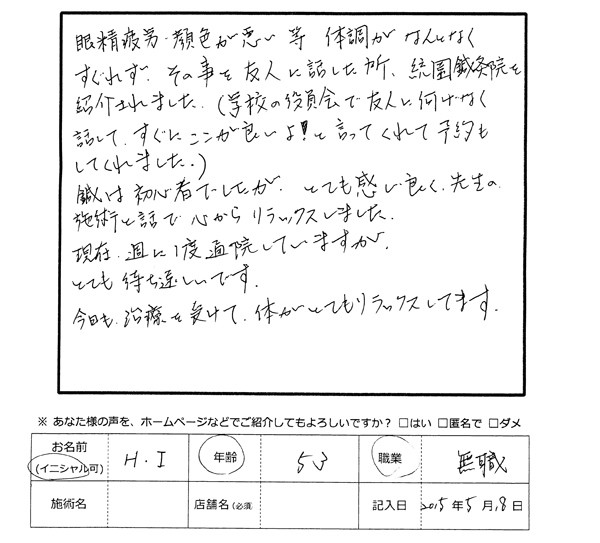 眼精疲労・顔色が悪い 等 体調が なんとなく
すぐれず、その事を友人に話した所、統園鍼灸院を
紹介されました。(学校の役員会で友人に何げなく
話して、すぐにここが良いよ!と言ってくれて予約も
してくれました。)
鍼は初心者でしたが、とても感じ良く、先生の
施術と話で心からリラックスしました。
現在、週に1度通院していますが、
とても待ち遠しいです。
今日も、治療を受けて、体がとてもリラックスしてます。
※ あなた様の声を、ホームページなどでご紹介してもよろしいですか? □はい □匿名で □ダメ
お名前 (イニシャル可) H.I 年齢 53 職業 無職
施術名 店舗名(必須) 記入日 2015年5月18日